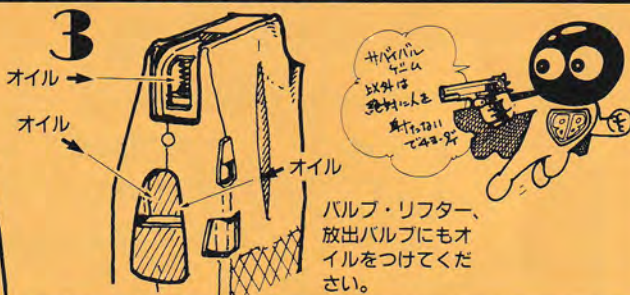 3
オイル
オイル
オイル
サバイバル
ゲーム
以外は
絶対に人を
射たない
でネ
バルブ・リフター、
放出バルブにもオ
イルをつけてくだ
さい。